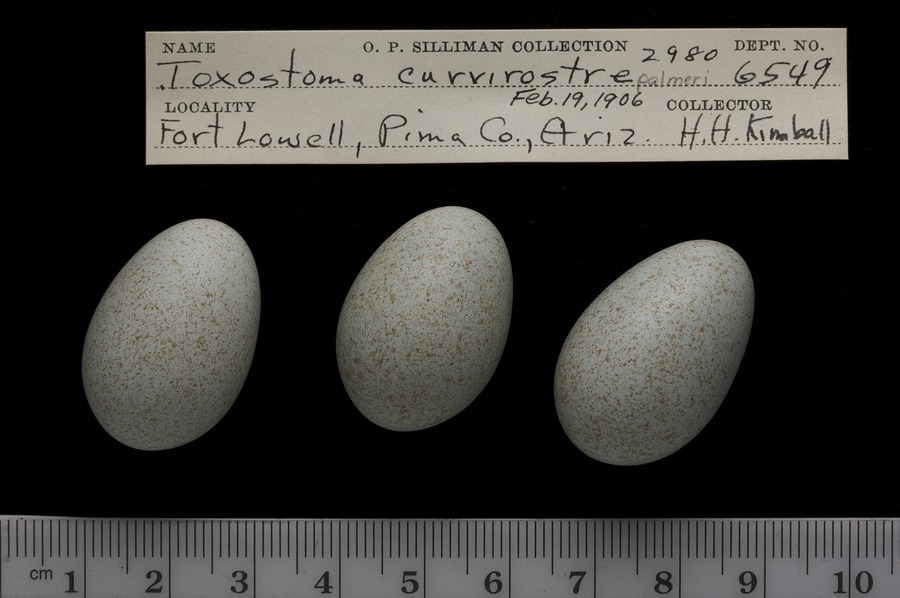 NAME O. P. SILLIMAN COLLECTION 2980 DEPT. NO.
Toxostoma curvirostre palmeri 6549
LOCALITY Feb. 19, 1906 COLLECTOR
Fort Lowell, Pima Co., Ariz. H.H. Kimball
cm 1 2 3 4 5 6 7 8 9 10